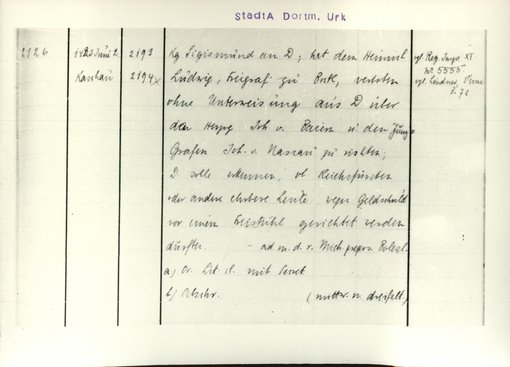 StadtA Dortm. Urk
2826
1423 Juni 2
Kaschau
2193
2194
Kg Sigismund an D, hat dem Heinrich
Ludwig, Freigraf zu Brk, verboten
ohne Unterweisung aus D über
den Herzog Joh v. Baiern u den Jung-
Grafen Joh. v. Nassau zu richten;
D. solle erkennen, ob Reichsfürsten
oder andere ehrbare Leute wegen Geldschuld
vor einem Freistuhl gerichtet werden
dürften. - ad m. d. r. Mich prepos. Bolesl.
a) Or. Lit. cl. mit Secret
b) Abschr.
vgl Reg Imp. XI
Nr 5555
vgl. Lindner, Veme
S. 72